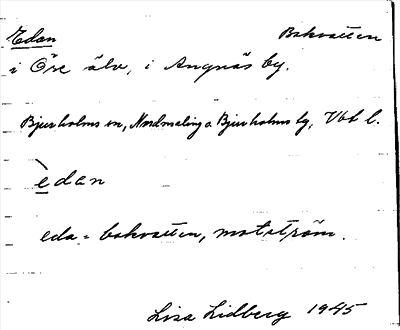 Edan Bakvatten
i Öre älv, i Angnäs by.
Bjurholms sn, Nordmaling o. Bjurholms tg, Vbt l.
èdan
eda = bakvatten, motström.
Lisa Lidberg 1945